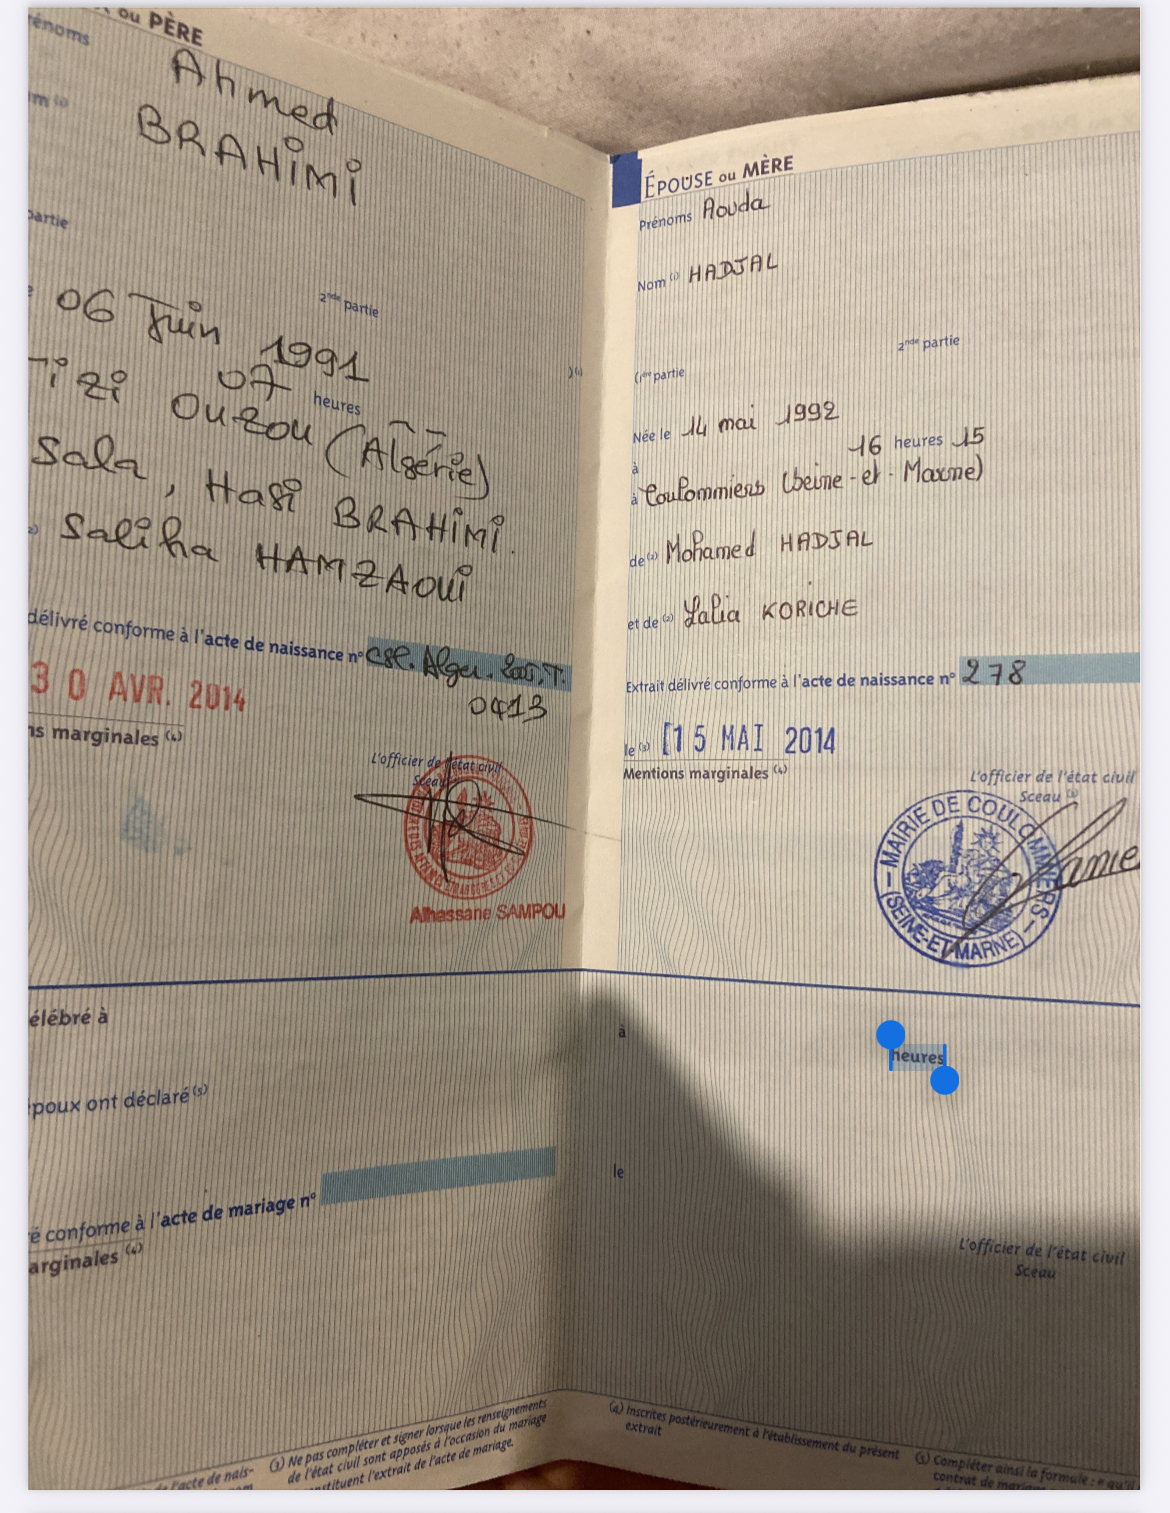 ou PÈRE
Prénoms
Ahmed
BRAHIMI
partie
2nde partie
06 Juin 1991
)(1)
07 heures
Tizi Ouzou (Algérie)
Sala, Hasi BRAHIMI.
Saliha HAMZAOUI
délivré conforme à l'acte de naissance n° CSL. Alger.
0413
30 AVR. 2014
ns marginales (4)
L'officier de l'état civil
Sceau
Alhassane SAMPOU
élébré à
époux ont déclaré (5)
é conforme à l'acte de mariage n°
arginales (4)
l'acte de nais-
(3) Ne pas compléter et signer lorsque les renseignements
de l'état civil sont apposés à l'occasion du mariage
nstituent l'extrait de l'acte de mariage.
ÉPOUSE ou MÈRE
Prénoms Aouda
Nom (1) HADJAL
2nde partie
(1ère partie
Née le 14 mai 1992
à 16 heures 15
à Coulommiers (Seine-et-Marne)
de (2) Mohamed HADJAL
et de (2) Lalia KORICHE
Extrait délivré conforme à l'acte de naissance n° 278
le (3) 15 MAI 2014
Mentions marginales (4)
L'officier de l'état civil
Sceau (3)
MAIRIE DE COULOMMIERS
(SEINE-ET-MARNE)
à
heures
le
L'officier de l'état civil
Sceau
(4) Inscrites postérieurement à l'établissement du présent
extrait
(5) Compléter ainsi la formule : « qu'il
contrat de mariage